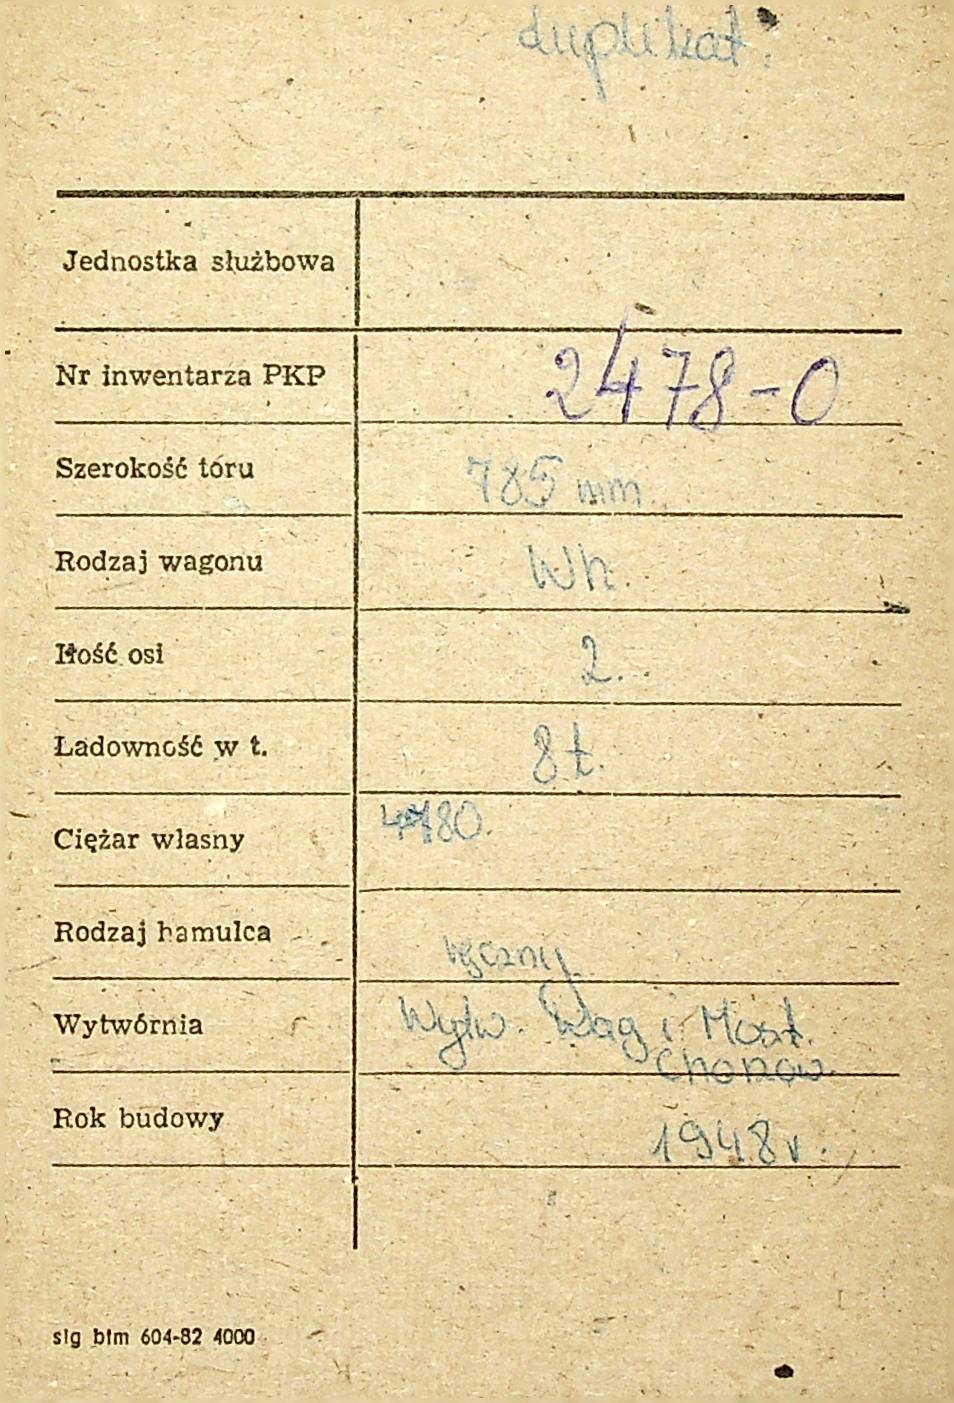 duplikat.
Jednostka służbowa
Nr inwentarza PKP 2478-0
Szerokość toru 785 mm.
Rodzaj wagonu Wh.
Ilość osi 2.
Ładowność w t. 8 t.
Ciężar własny
Rodzaj hamulca ręczny
Wytwórnia Wytw. Wag i Most.
Chorzów
Rok budowy 1948 r.
slg blm 604-82 4000